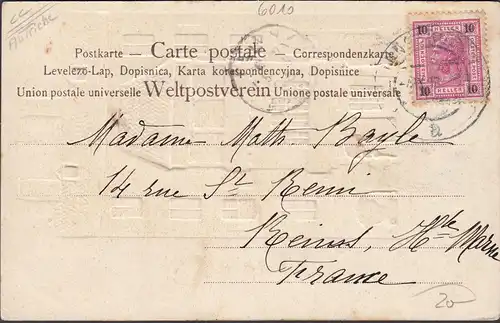 cc
Autriche
6010
Postkarte — Carte postale — Correspondenzkarte
Levelezo-Lap, Dopisnica, Karta korespondencyjna, Dopisnice
Union postale universelle Weltpostverein Unione postale universale
10 HELLER 10
10 HELLER 10
Madame Math Bayle
14 rue St Remi
Reims, Hte Marne
France
20